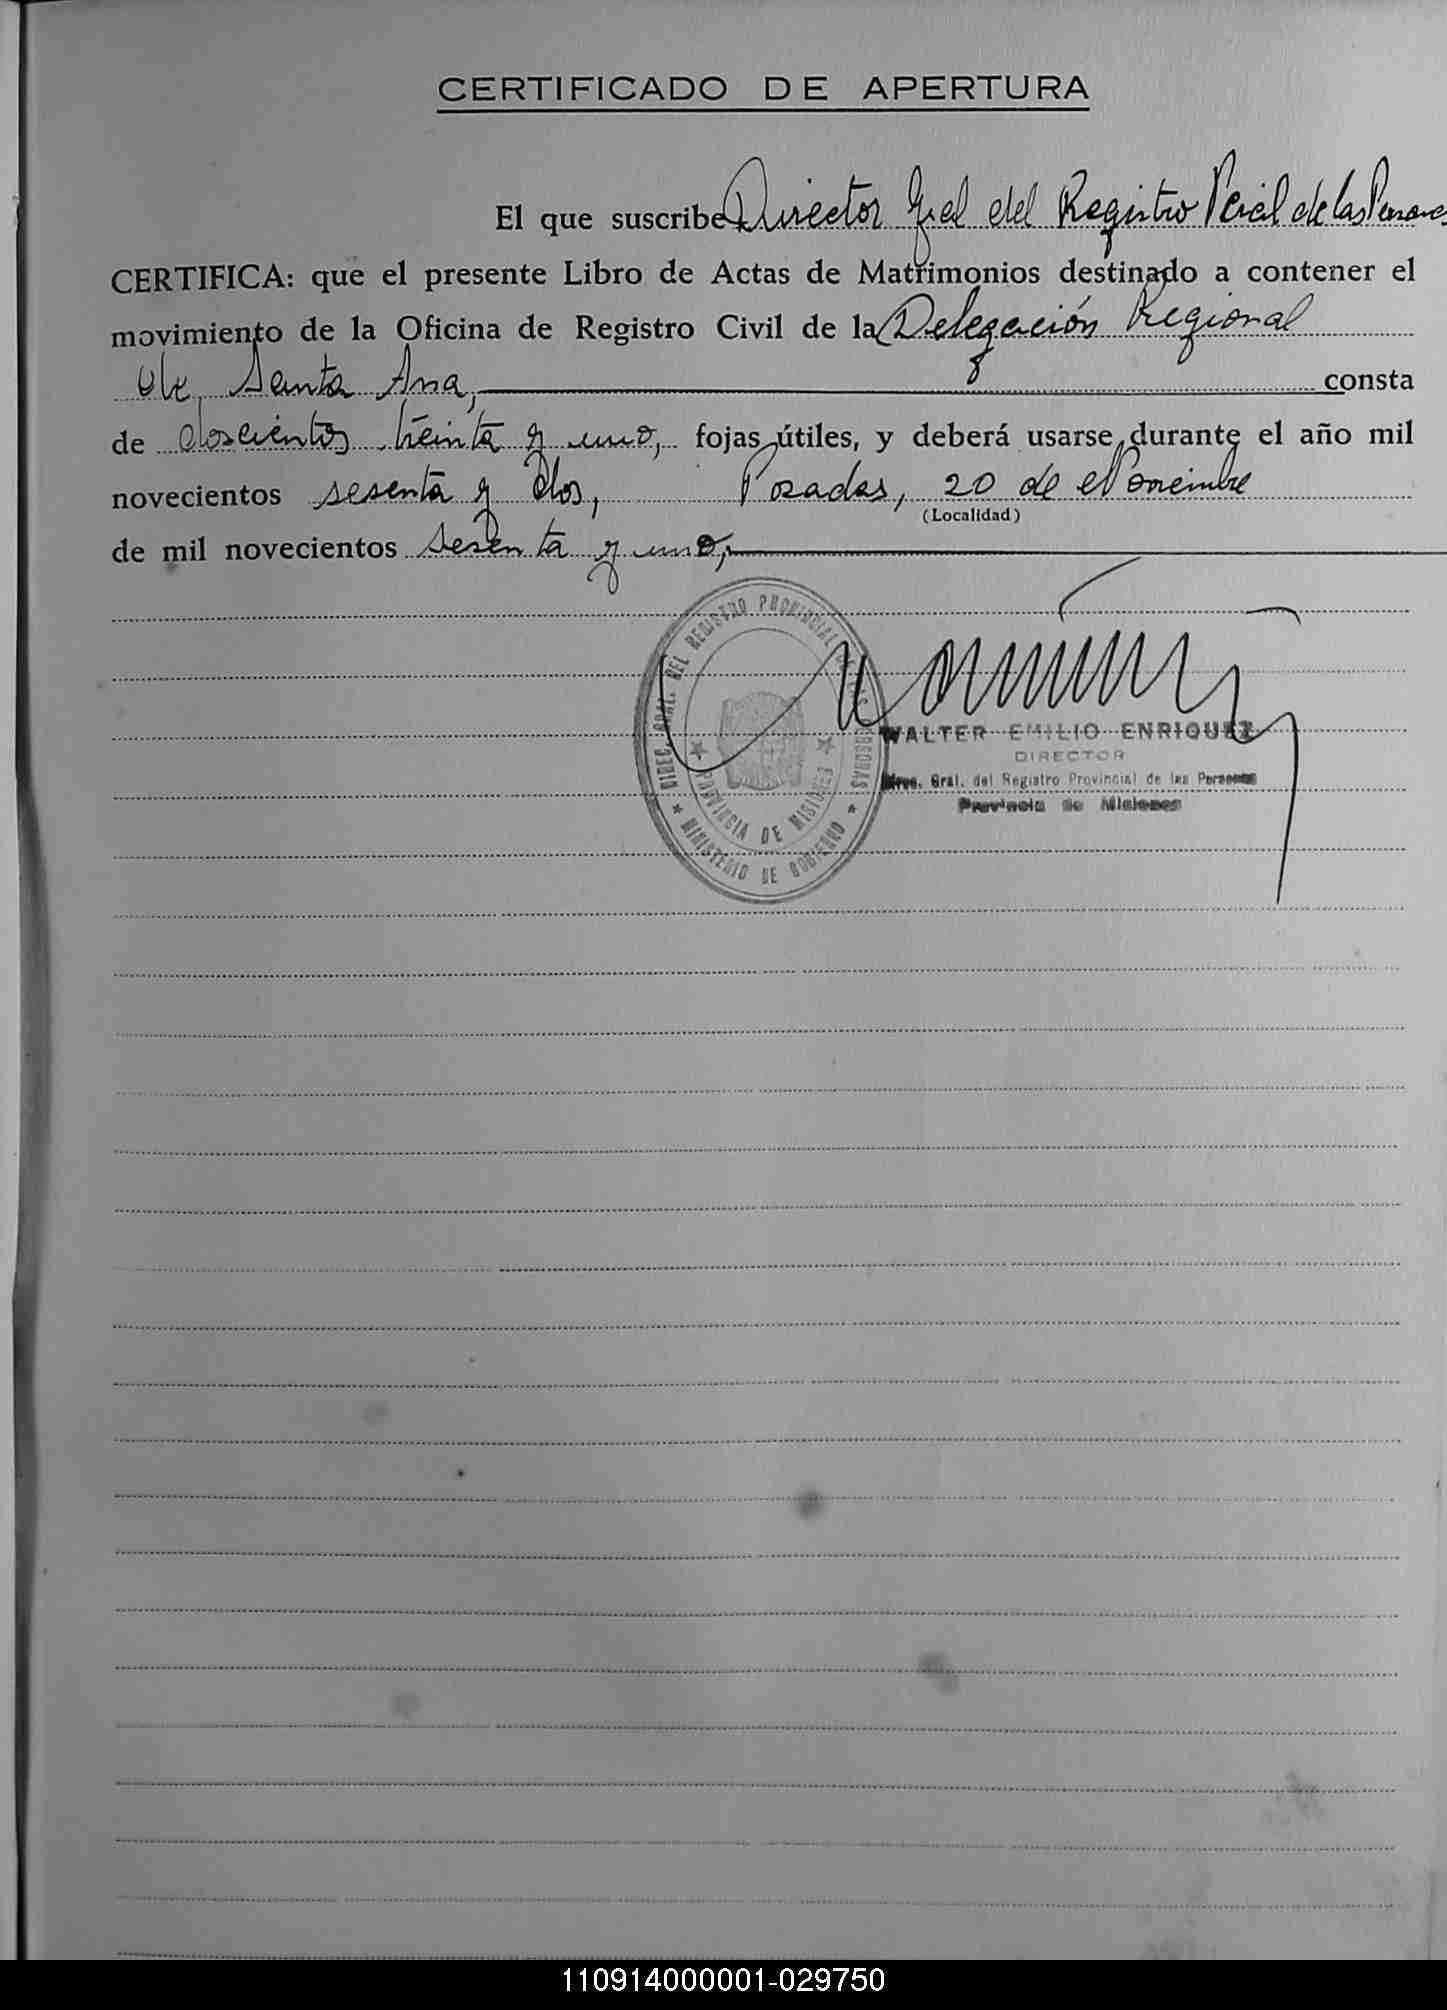 CERTIFICADO DE APERTURA
El que suscribe Director Gral del Registro Pcial de las Personas
CERTIFICA: que el presente Libro de Actas de Matrimonios destinado a contener el
movimiento de la Oficina de Registro Civil de la Delegación Regional
de Santa Ana, consta
de doscientos treinta y uno, fojas útiles, y deberá usarse durante el año mil
novecientos sesenta y dos, Posadas, 20 de Noviembre
(Localidad)
de mil novecientos sesenta y uno,
DIREC. GRAL. DEL REGISTRO PROVINCIAL DE LAS PERSONAS
PROVINCIA DE MISIONES
MINISTERIO DE GOBIERNO
WALTER EMILIO ENRIQUEZ
DIRECTOR
Direc. Gral. del Registro Provincial de las Personas
Provincia de Misiones
110914000001-029750